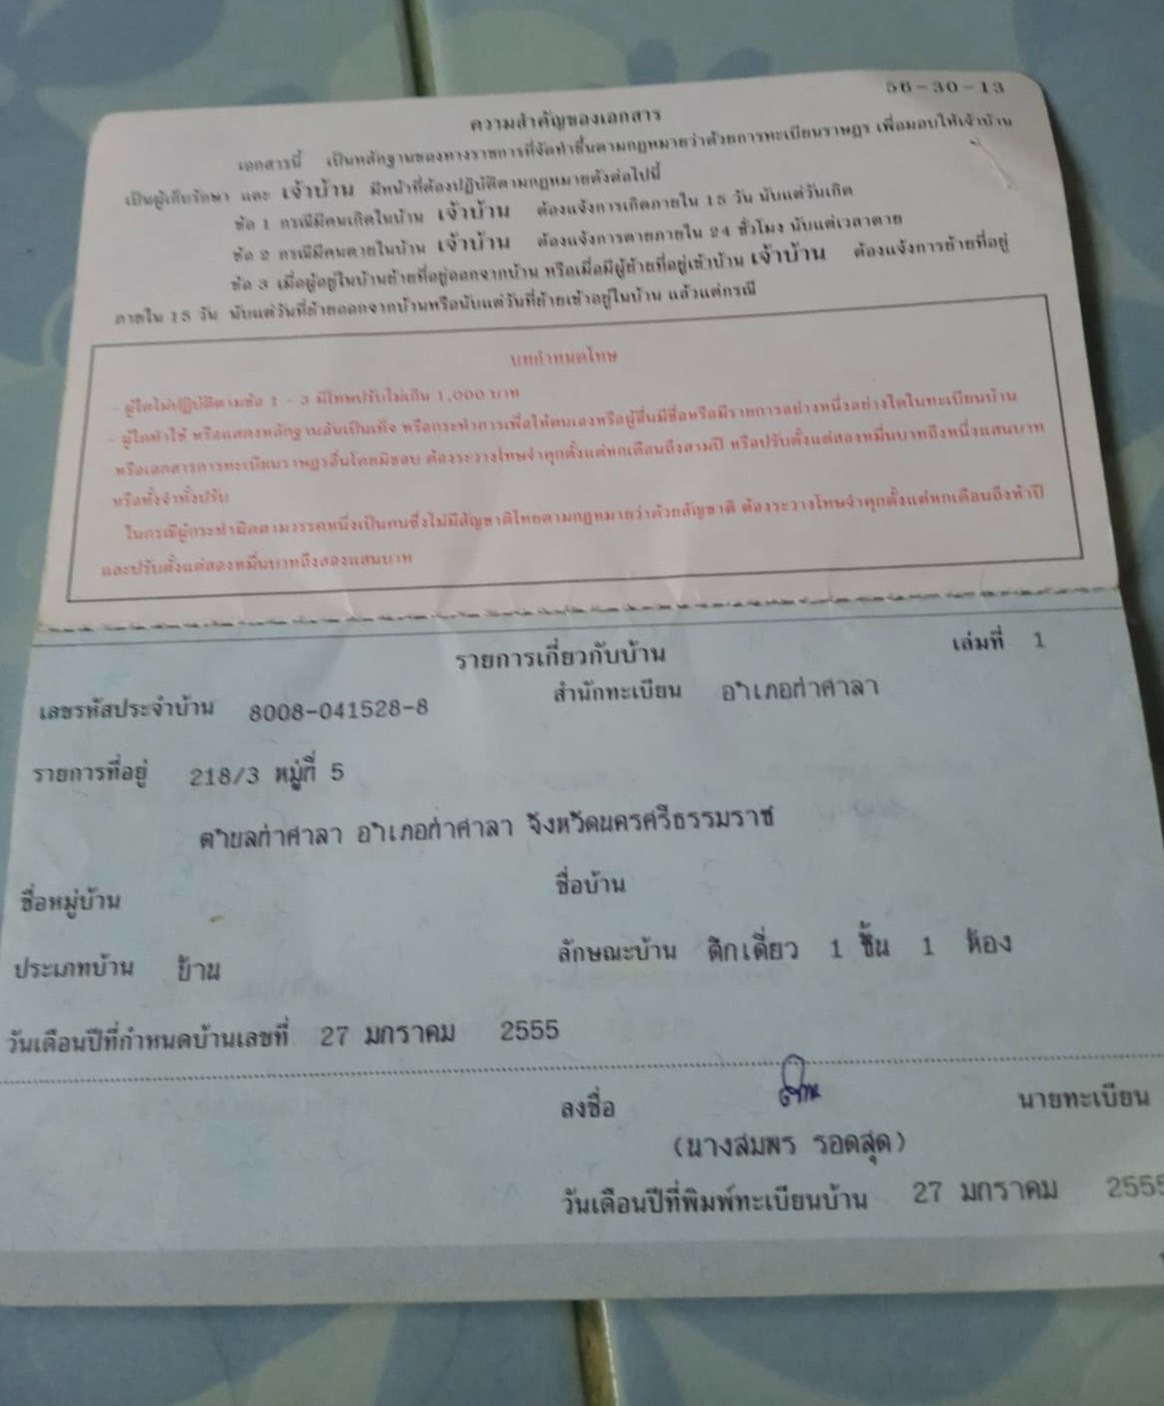 56-30-13
ความสำคัญของเอกสาร
เอกสารนี้ เป็นหลักฐานของทางราชการที่จัดทำขึ้นตามกฎหมายว่าด้วยการทะเบียนราษฎร เพื่อมอบให้เจ้าบ้าน
เป็นผู้เก็บรักษา และ เจ้าบ้าน มีหน้าที่ต้องปฏิบัติตามกฎหมายดังต่อไปนี้
ข้อ 1 กรณีมีคนเกิดในบ้าน เจ้าบ้าน ต้องแจ้งการเกิดภายใน 15 วัน นับแต่วันเกิด
ข้อ 2 กรณีมีคนตายในบ้าน เจ้าบ้าน ต้องแจ้งการตายภายใน 24 ชั่วโมง นับแต่เวลาตาย
ข้อ 3 เมื่อผู้อยู่ในบ้านย้ายที่อยู่ออกจากบ้าน หรือเมื่อมีผู้ย้ายที่อยู่เข้าบ้าน เจ้าบ้าน ต้องแจ้งการย้ายที่อยู่
ภายใน 15 วัน นับแต่วันที่ย้ายออกจากบ้านหรือนับแต่วันที่ย้ายเข้าอยู่ในบ้าน แล้วแต่กรณี
บทกำหนดโทษ
- ผู้ใดไม่ปฏิบัติตามข้อ 1 - 3 มีโทษปรับไม่เกิน 1,000 บาท
- ผู้ใดทำ ใช้ หรือแสดงหลักฐานอันเป็นเท็จ หรือกระทำการเพื่อให้ตนเองหรือผู้อื่นมีชื่อหรือมีรายการอย่างหนึ่งอย่างใดในทะเบียนบ้าน
หรือเอกสารการทะเบียนราษฎรอื่นโดยมิชอบ ต้องระวางโทษจำคุกตั้งแต่หกเดือนถึงสามปี หรือปรับตั้งแต่สองหมื่นบาทถึงหนึ่งแสนบาท
หรือทั้งจำทั้งปรับ
ในกรณีผู้กระทำผิดตามวรรคหนึ่งเป็นคนซึ่งไม่มีสัญชาติไทยตามกฎหมายว่าด้วยสัญชาติ ต้องระวางโทษจำคุกตั้งแต่หกเดือนถึงห้าปี
และปรับตั้งแต่สองหมื่นบาทถึงสองแสนบาท
รายการเกี่ยวกับบ้าน เล่มที่ 1
เลขรหัสประจำบ้าน 8008-041528-8 สำนักทะเบียน อำเภอท่าศาลา
รายการที่อยู่ 218/3 หมู่ที่ 5
ตำบลท่าศาลา อำเภอท่าศาลา จังหวัดนครศรีธรรมราช
ชื่อหมู่บ้าน ชื่อบ้าน
ประเภทบ้าน บ้าน ลักษณะบ้าน ตึกเดี่ยว 1 ชั้น 1 ห้อง
วันเดือนปีที่กำหนดบ้านเลขที่ 27 มกราคม 2555
ลงชื่อ นายทะเบียน
(นางสมพร รอดสุด)
วันเดือนปีที่พิมพ์ทะเบียนบ้าน 27 มกราคม 2555